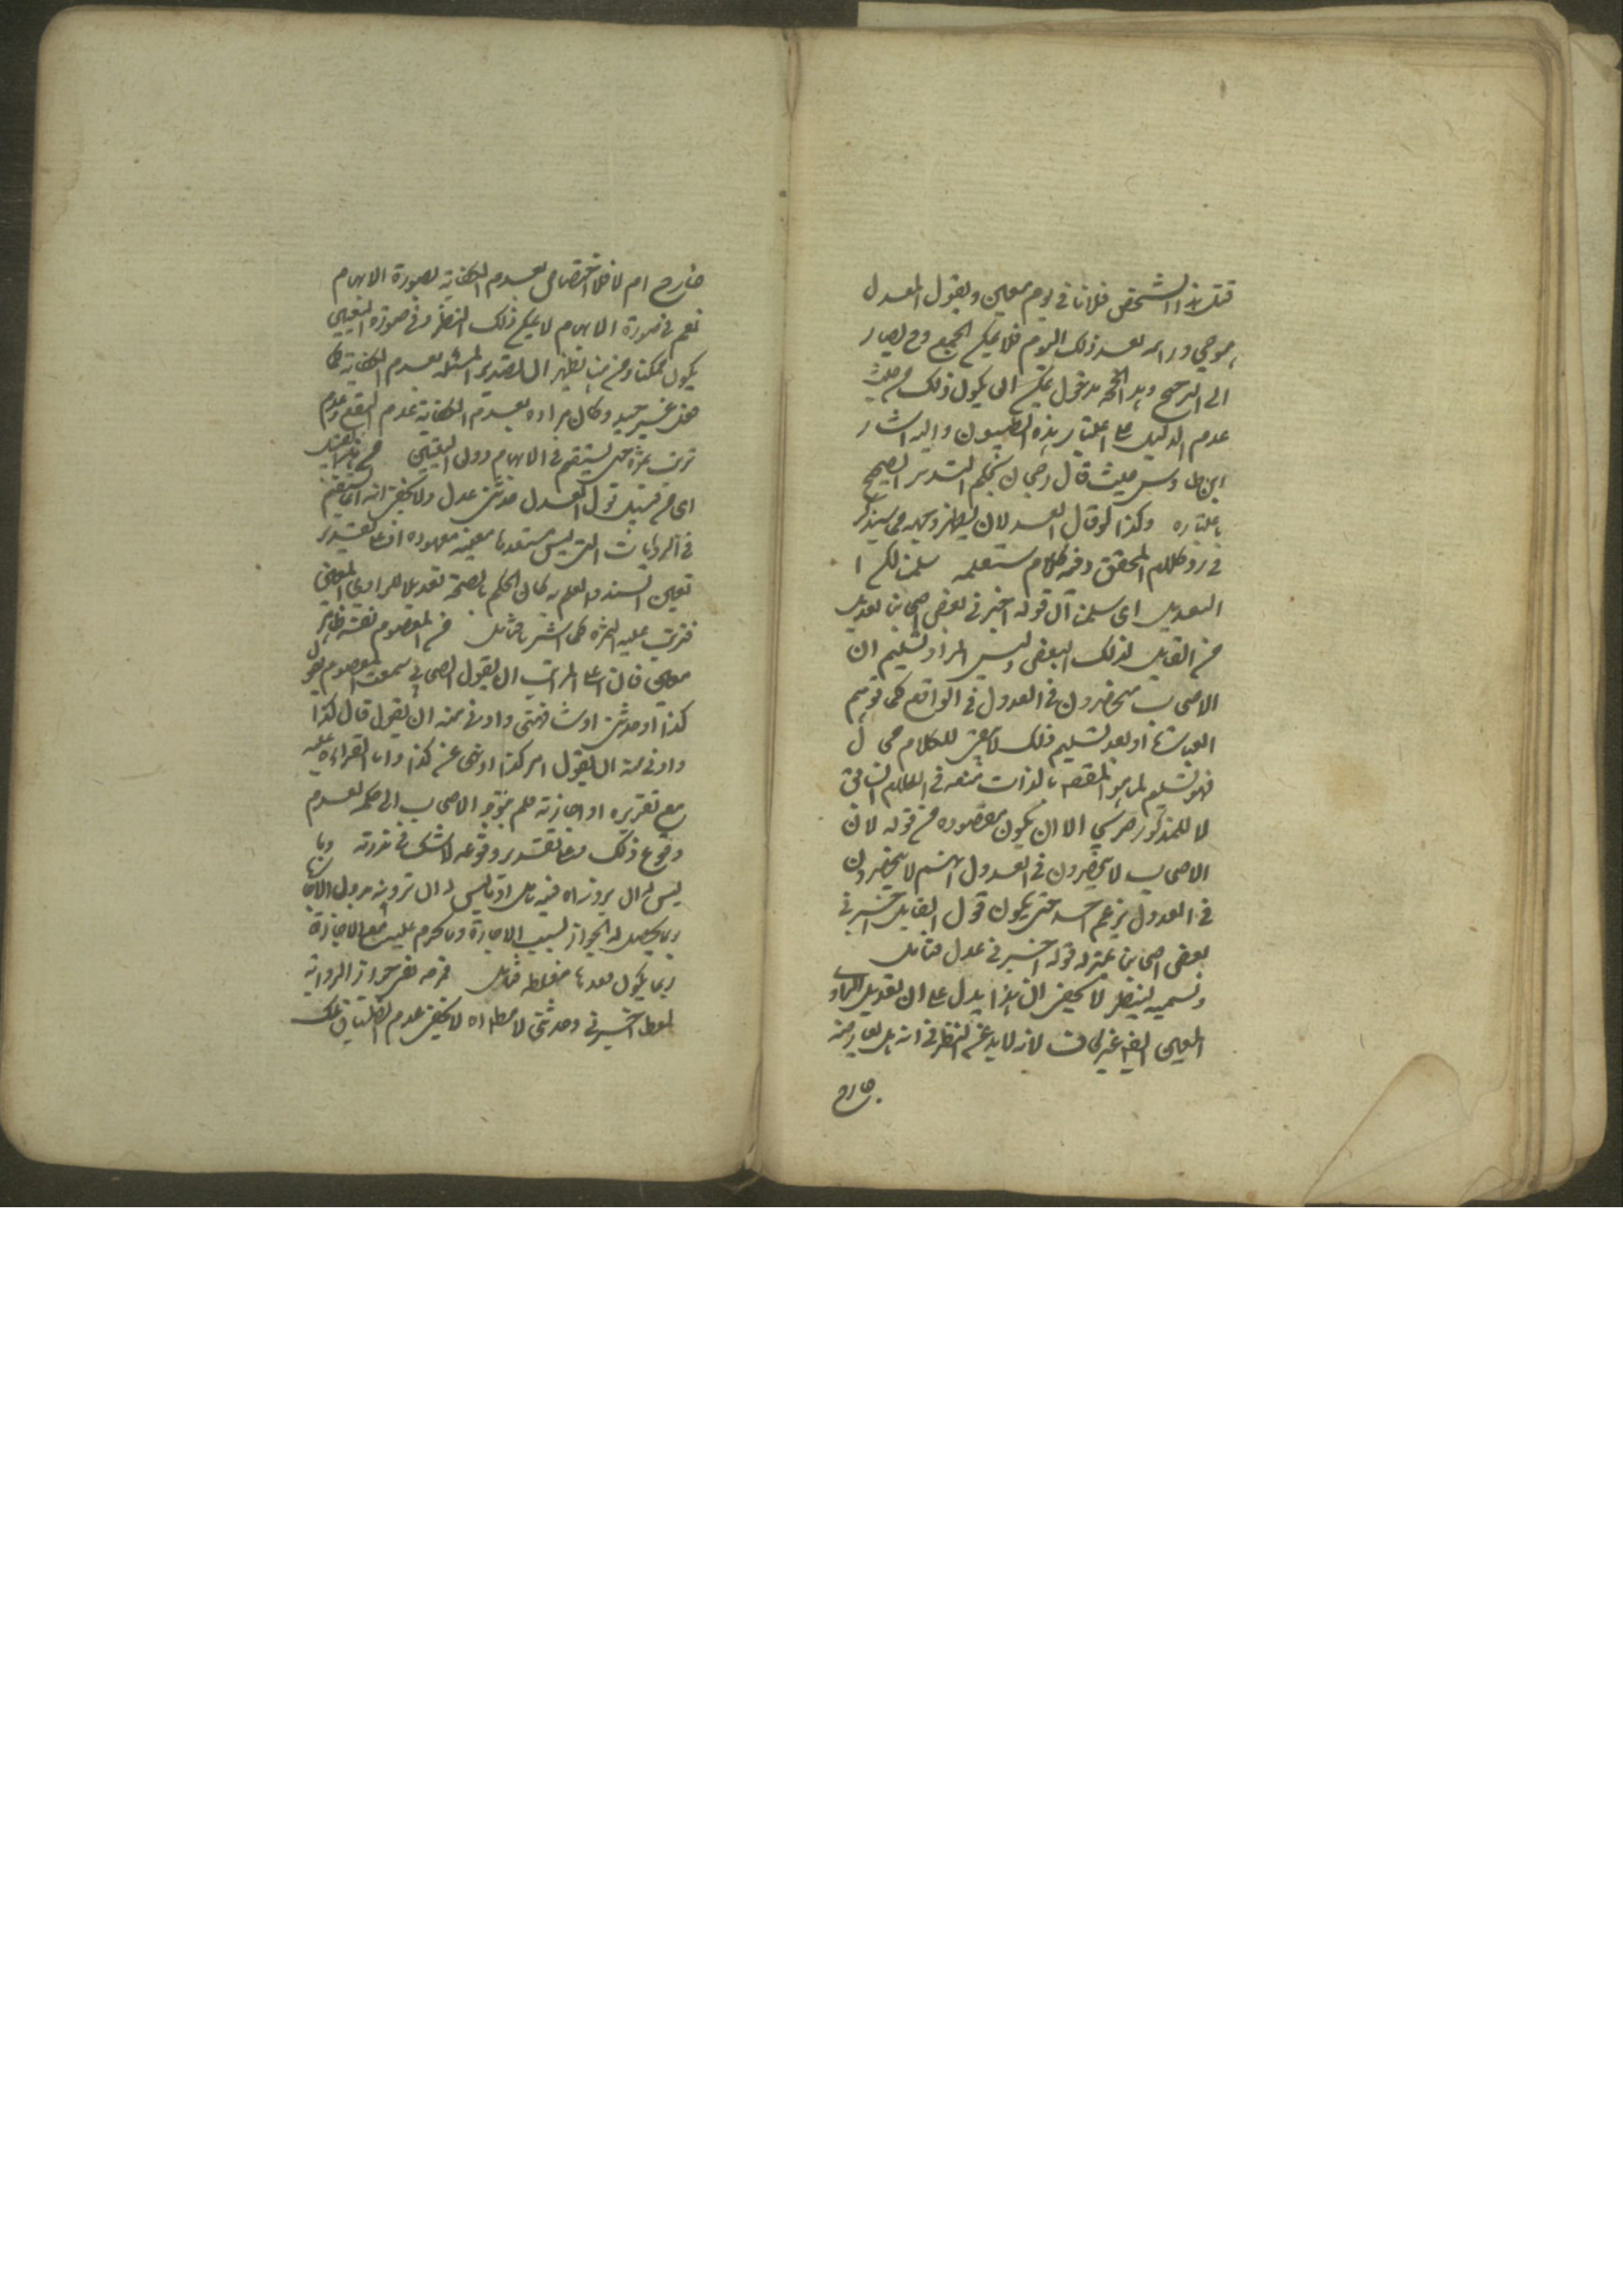 قتل هذا الشخص فلانا في يوم معين ويقول المعدل
هو حي وراه بعد ذلك اليوم فلا يمكن الجمع وح يصار
الى الترجيح وهذا الحق مدخول يمكن ان يكون ذلك من حيث
عدم الدليل على اعتبار هذه الظنون واليه اشار
ابن طاوس حيث قال رجحان يحكم التدبر الصحيح
باعتباره وكذا لو قال العدلان
في رد كلام المحقق وفيه كلام ستعلمه سلمنا لكن
التعديل اى سلمنا ان قوله اخبرني بعض اصحابنا تعديل
من القايل لذلك البعض وليس المراد تسليم ان
الاصحاب منحصرون في العدول في الواقع كما توهم
العبارة اذ بعد تسليم ذلك لا يبقى للكلام مجال
فهو تسليم لما هو المقصود بالذات منعه في الكلام السابق
لا للمذكور صريحا الا ان يكون مقصوده من قوله لان
الاصحاب لا ينحصرون في العدول انهم لا ينحصرون
في العدول بزعم احد حتى يكون قول القايل اخبرني
بعض اصحابنا بمنزلة قوله اخبرني عدل فتامل
وتسميه لينظر لا يخفى ان هذا يدل على ان تعديل الراوي
المعين ايضا غير كاف لانه لا بد من النظر في انه هل له معارض
جارح
جارح ام لا فلا اختصاص لعدم الكفاية بصورة الابهام
نعم في صورة الابهام لا يمكن ذلك النظر وفي صورة التعيين
يكون ممكنا ومن هنا يظهر ان تصدير المسئلة بعدم الكفاية
غير جيد وكان مراده بعدم الكفاية عدم النفع وعدم
ترتب ثمرة حتى يستقيم في الابهام دون التعيين من هذا القبيل
اى من قبيل قول العدل حدثني عدل ولا يخفى انه انما يستقيم
في الروايات التي ليس سندها معينة معهودة اذ على تقدير
تعيين السند والعلم به كان الحكم بالصحة تعديلا للراوي المعين
فترتب عليه الثمرة كما اشرنا فتامل من المعصوم نفسه ظاهر
معين فان اعلى المراتب ان يقول الصحابي سمعت المعصوم يقول
كذا او حدثني او شافهني وادنى منه ان يقول قال كذا
وادنى منه ان يقول امر كذا او نهى عن كذا واما القراءة عليه
مع تقريره او اجازته فلم يتوجه الاصحاب الى حكمه لعدم
وقوع ذلك وعلى تقدير وقوعه لا شك في ندرته وما
ليس له ان يرويه اه فيه تامل اذ ما ليس له ان يرويه بدون الاجازة
ربما يحصل له الجواز بسبب الاجازة وما يحرم عليه مع الاجازة
ربما يكون بعدها مغلطة فتامل فرحه نفى جواز الرواية
بلفظ اخبرني وحدثني لا مطلقا اه لا يخفى عدم انطباق تلك